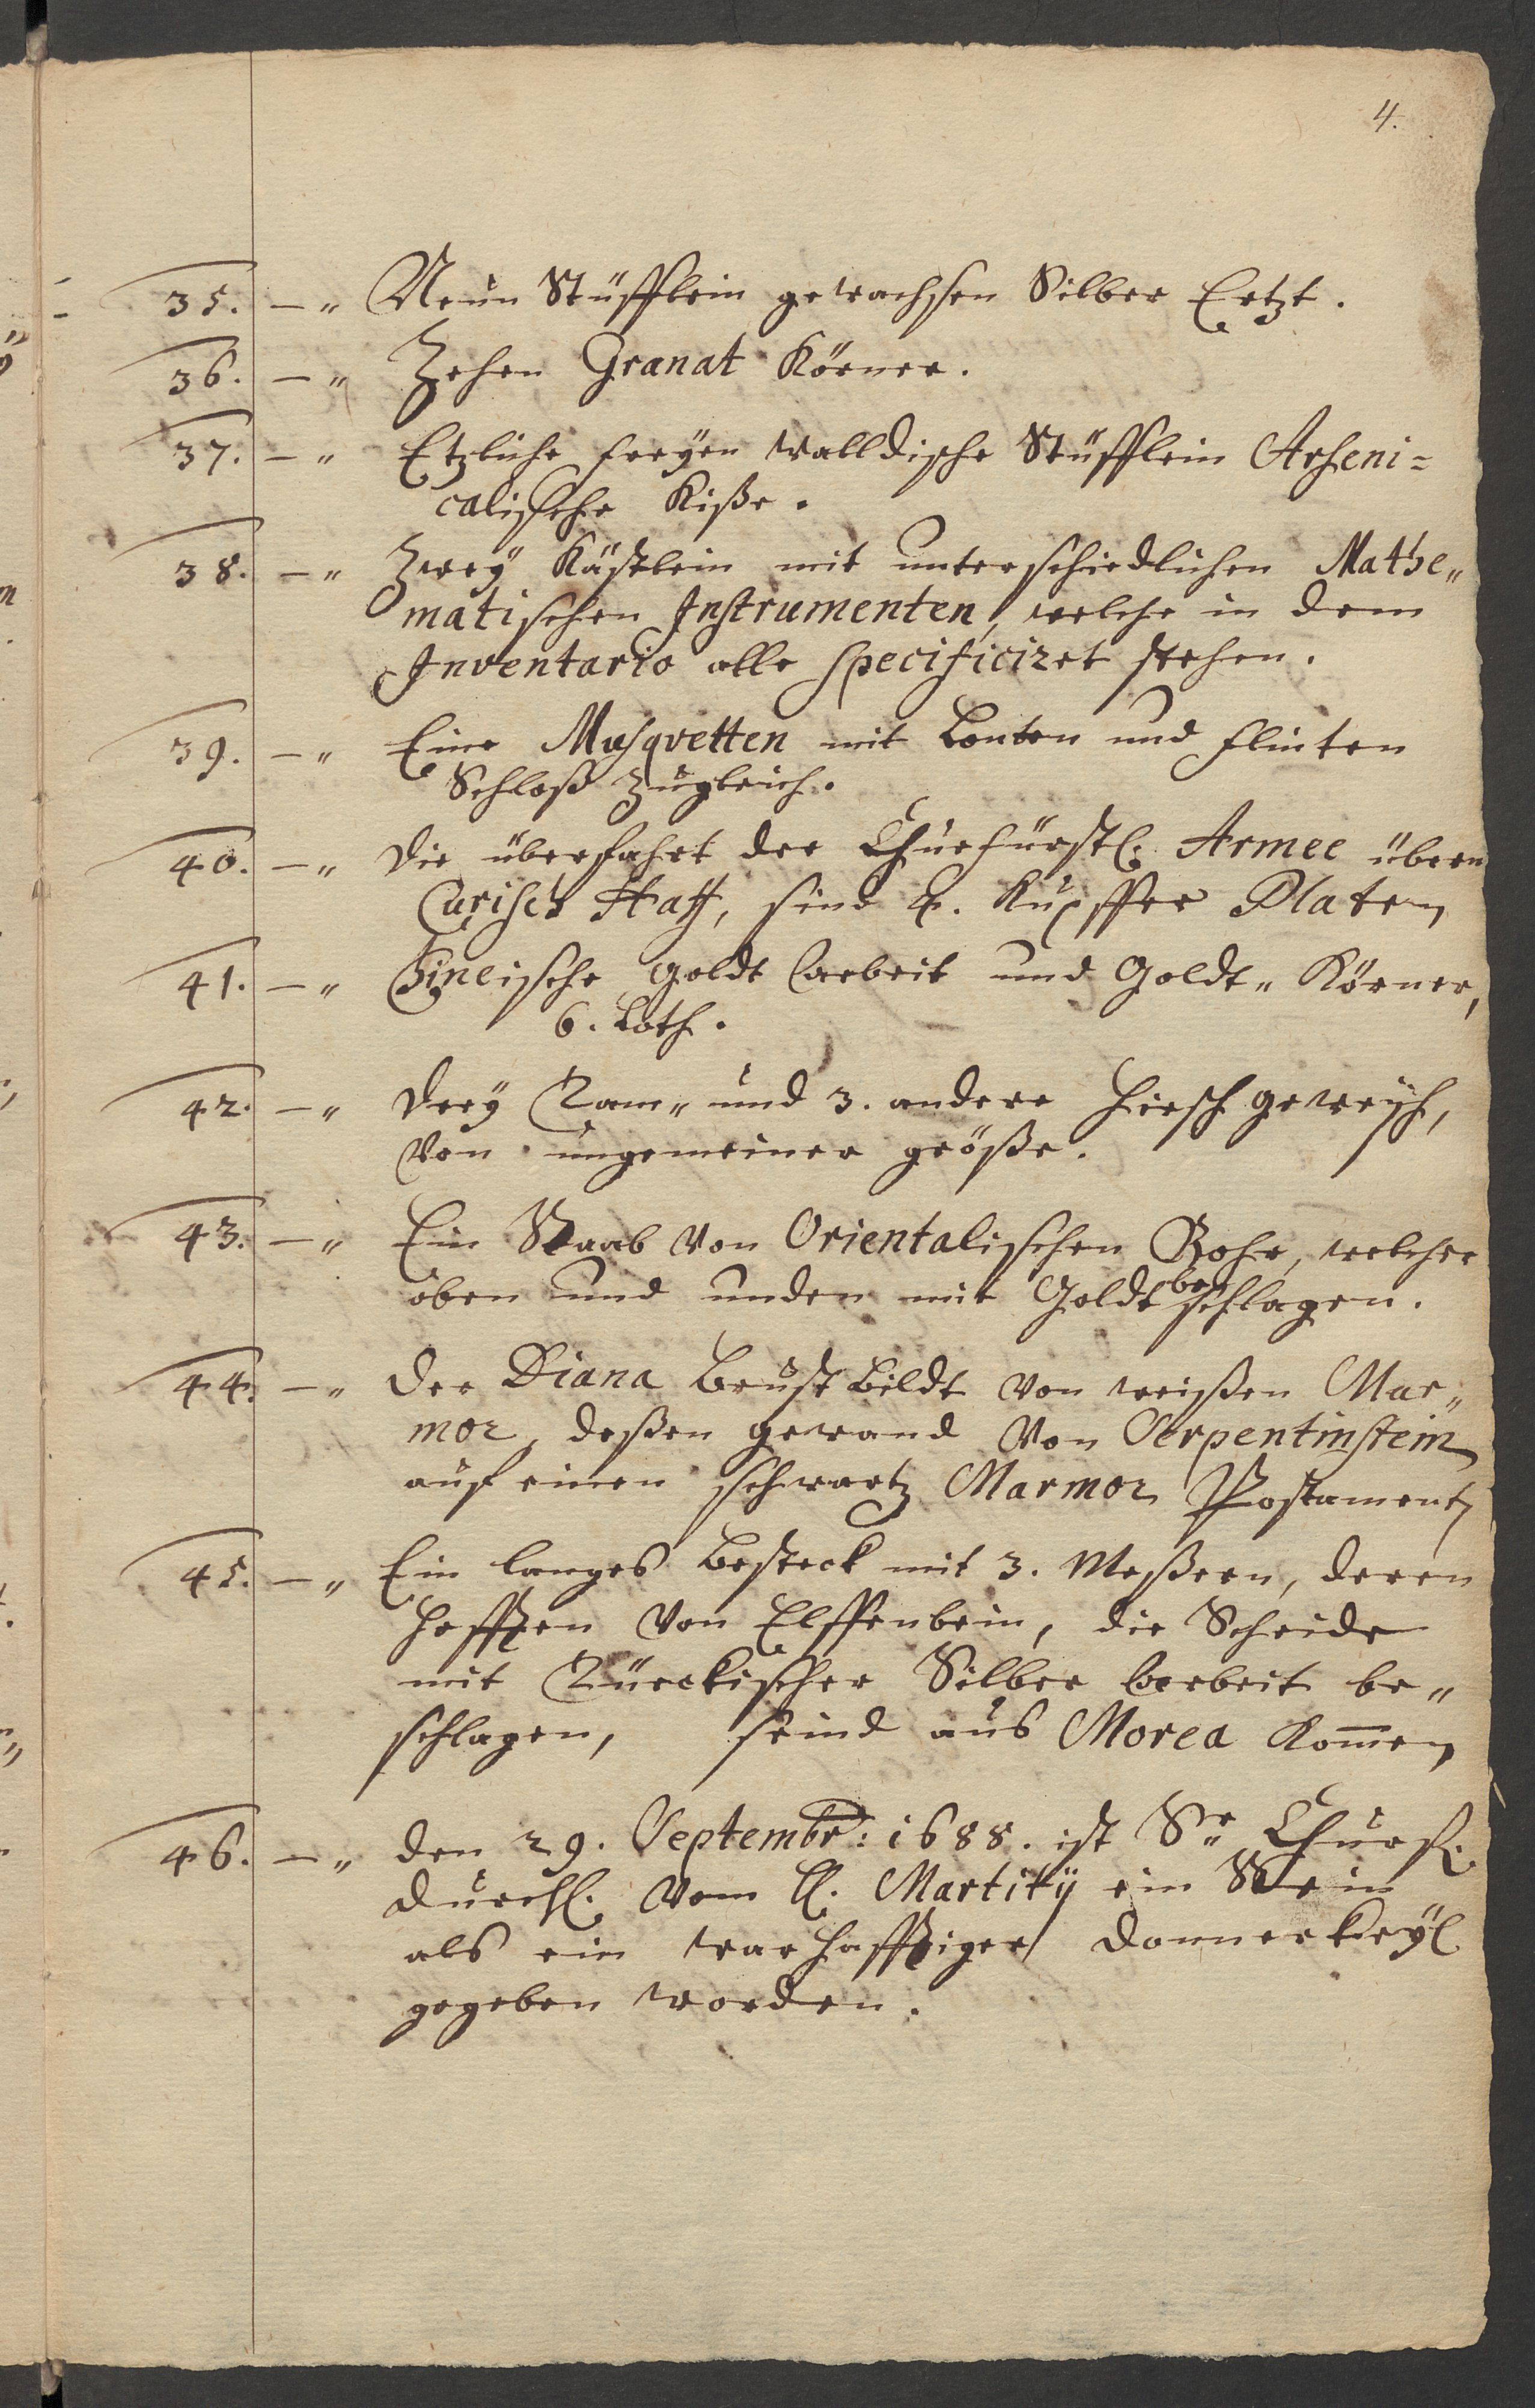 4.
35. – „ Neun Stüfflein gewachssen Silber Ertzt.
36. – „ Zehen Granat Körner.
37. – „ Etzliche freyen walldische Stüfflein Arseni=
calische Kiße.
38. – „ Zwey Kästlein mit unterschiedlichen Mathe„
matischen Instrumenten, welche in dem
Inventario alle specificiret stehen.
39. – „ Eine Musqvetten mit Lonten und flinten
Schloß zugleich.
40. – „ Die überfahrt der Churfürstl. Armee übern
Curisch Haff, sind 4. Kupffer Platen
41. – „ Chineische Goldt arbeit und Goldt„ Körner,
6. Loth.
42. – „ Drey Tam„ und 3. andere Hirsch geweyh,
von ungemeiner größe.
43. – „ Ein Staab von Orientalischen Rohr, welcher
oben und unden mit Goldt beschlagen.
44. – „ Der Diana Brust Bildt von weißen Mar„
mor, deßen gewand von Serpentinstein
auf einen schwartz Marmor Postament
45. – „ Ein langes Besteck mit 3. Meßern, deren
Hefften von Elffenbein, die Scheide
mit Türckischer Silber arbeit be„
schlagen, seind aus Morea kom̄en
46. – „ Den 29. Septembr: 1688. ist Sr. Churf.
Durchl. vom H. Martitÿ ein Stein
als ein warhafftiger Donnerkeyl
gegeben worden.